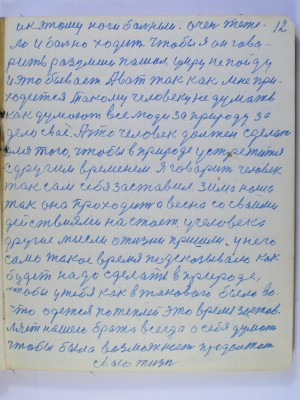 12
и к этому ноги больны. очен тяже-
ло и больно ходит. Чтобы я он гово-
рить разумши пашол умру не пойду
и это бывает. А вот так как мне при-
ходится такому человеку не думать
как думают все люди за природу за
дело своё. А что человек должен сделать
для того, чтобы в природе устретится
с другим временем. Я говорит человек
так сам себя заставил. Зима нашь
так она проходит а весна со своими
действиями настает. у человека
другие мысли о жизни пришли, у него
само такое время подсказывало как
будет надо сделать в природе,
чтобы у тебя как в такового было во-
что одется потеплей. Это время застав-
лят нашего брата всегда о себя думат
чтобы была возможност продолжат
свою жизн